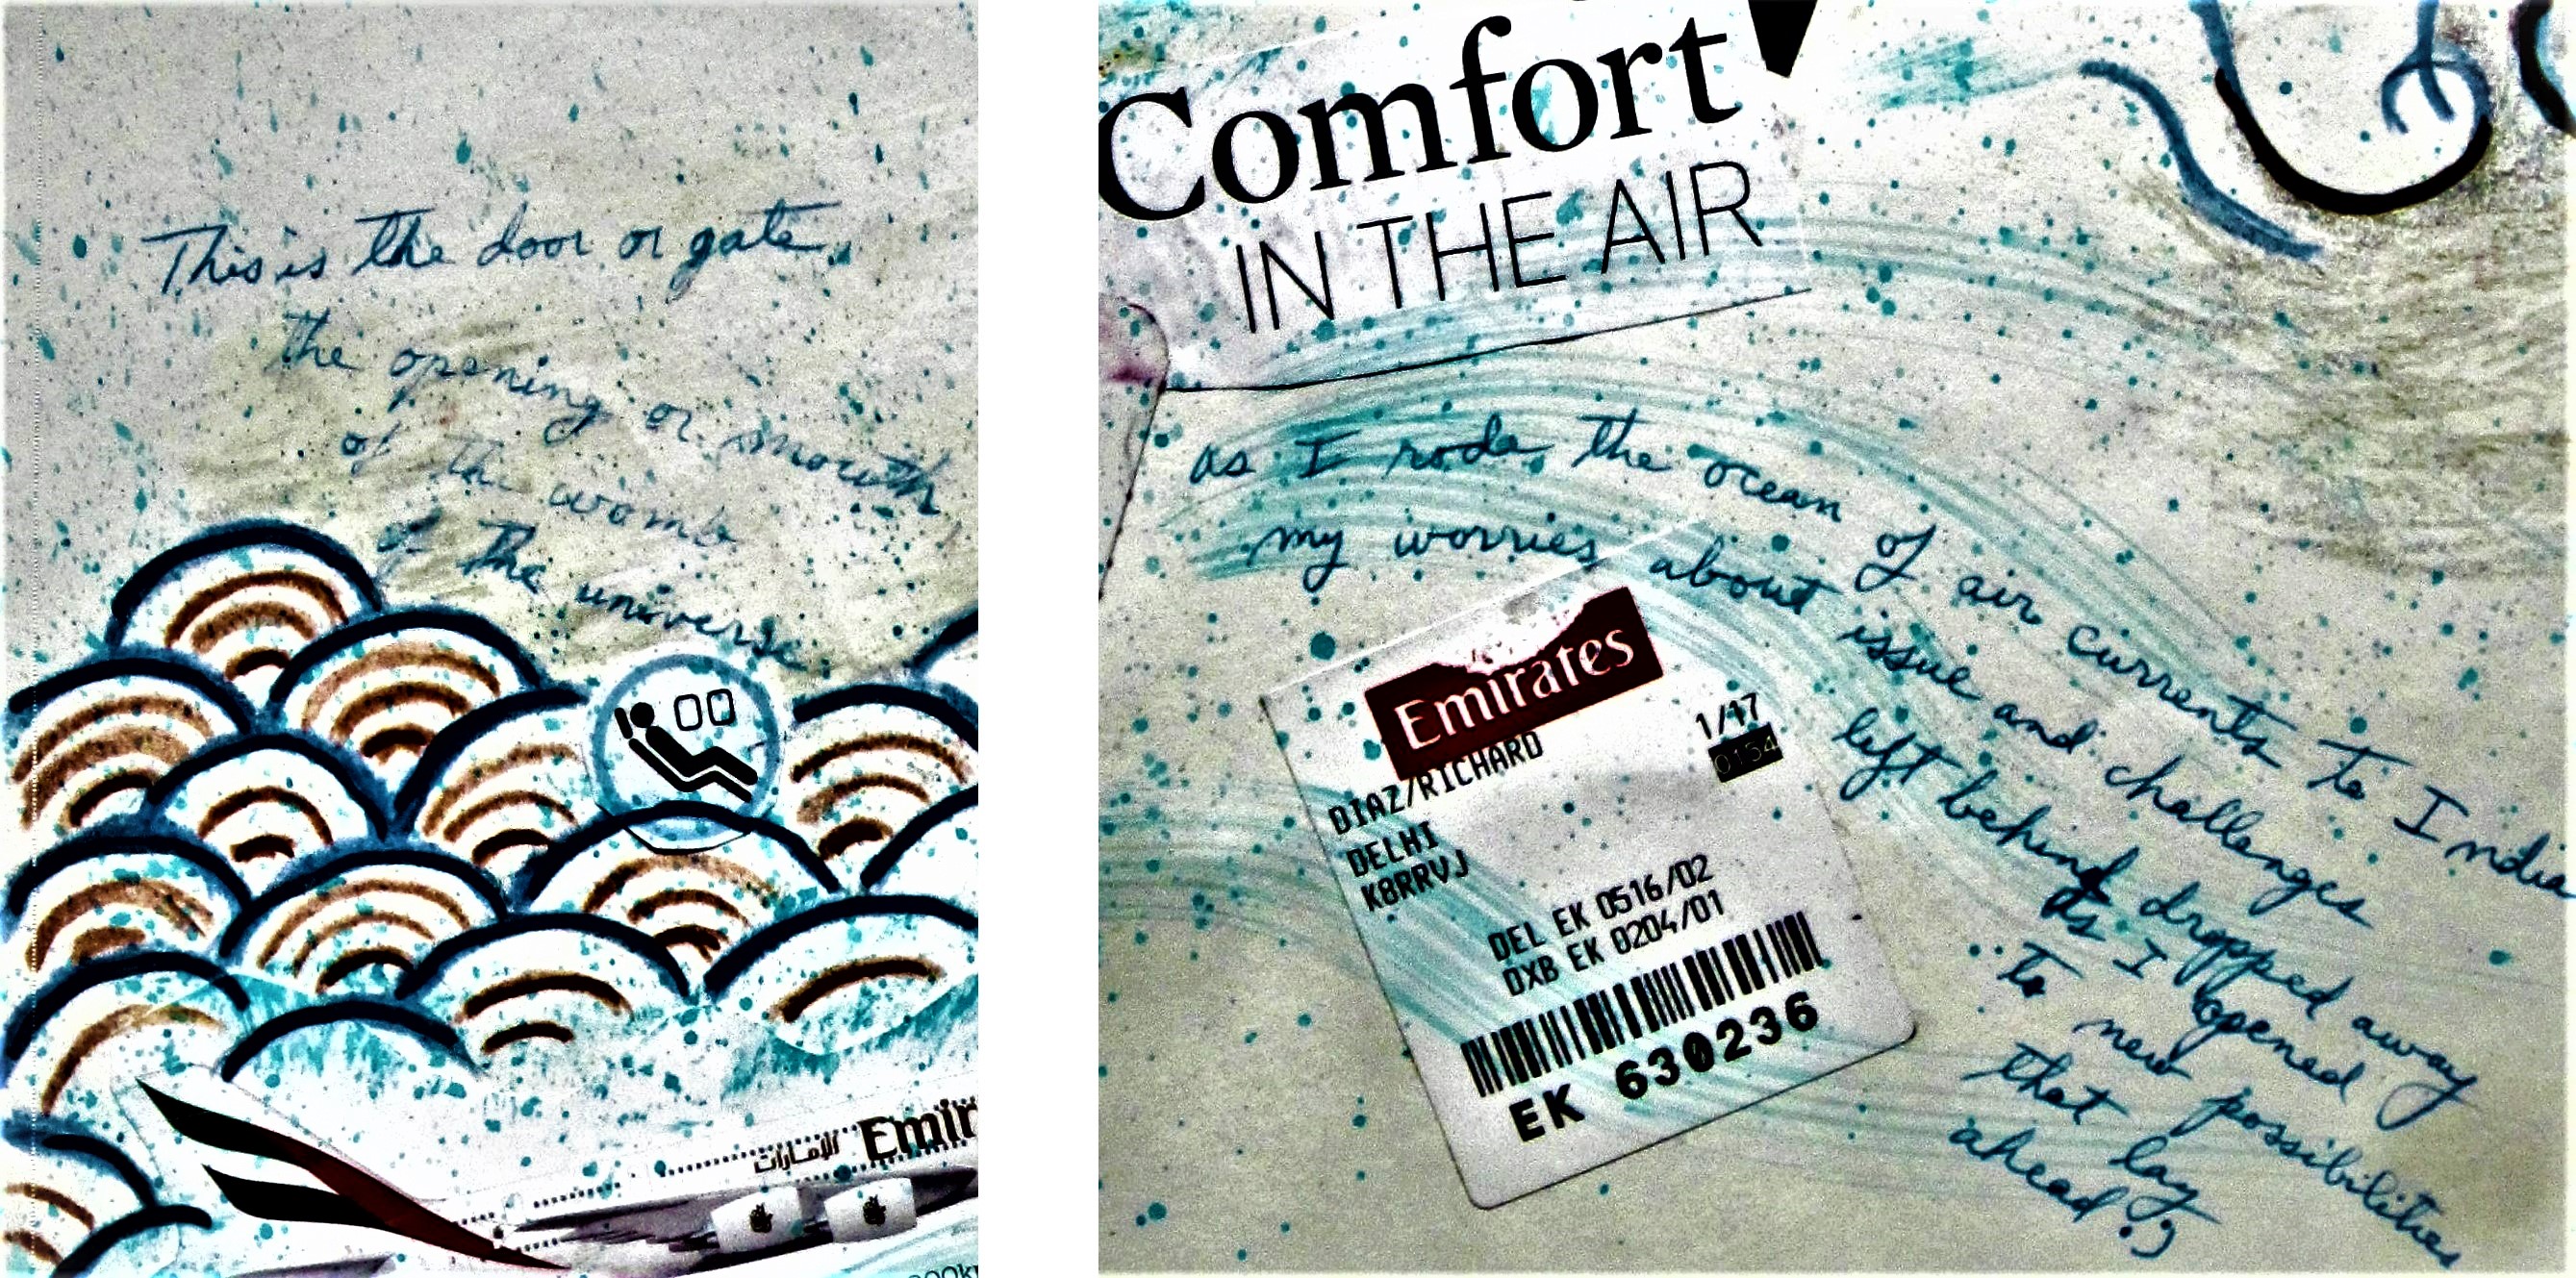 This is the door or gate,
the opening or mouth,
of the womb
of the universe
الإمارات Emir
Comfort
IN THE AIR
as I rode the ocean of air currents to India
my worries about issue and challenges
left behind dropped away
As I opened
to new possibilities
that lay
ahead :)
Emirates
1/17
0154
DIAZ/RICHARD
DELHI
K8RRVJ
DEL EK 0516/02
DXB EK 0204/01
EK 630236